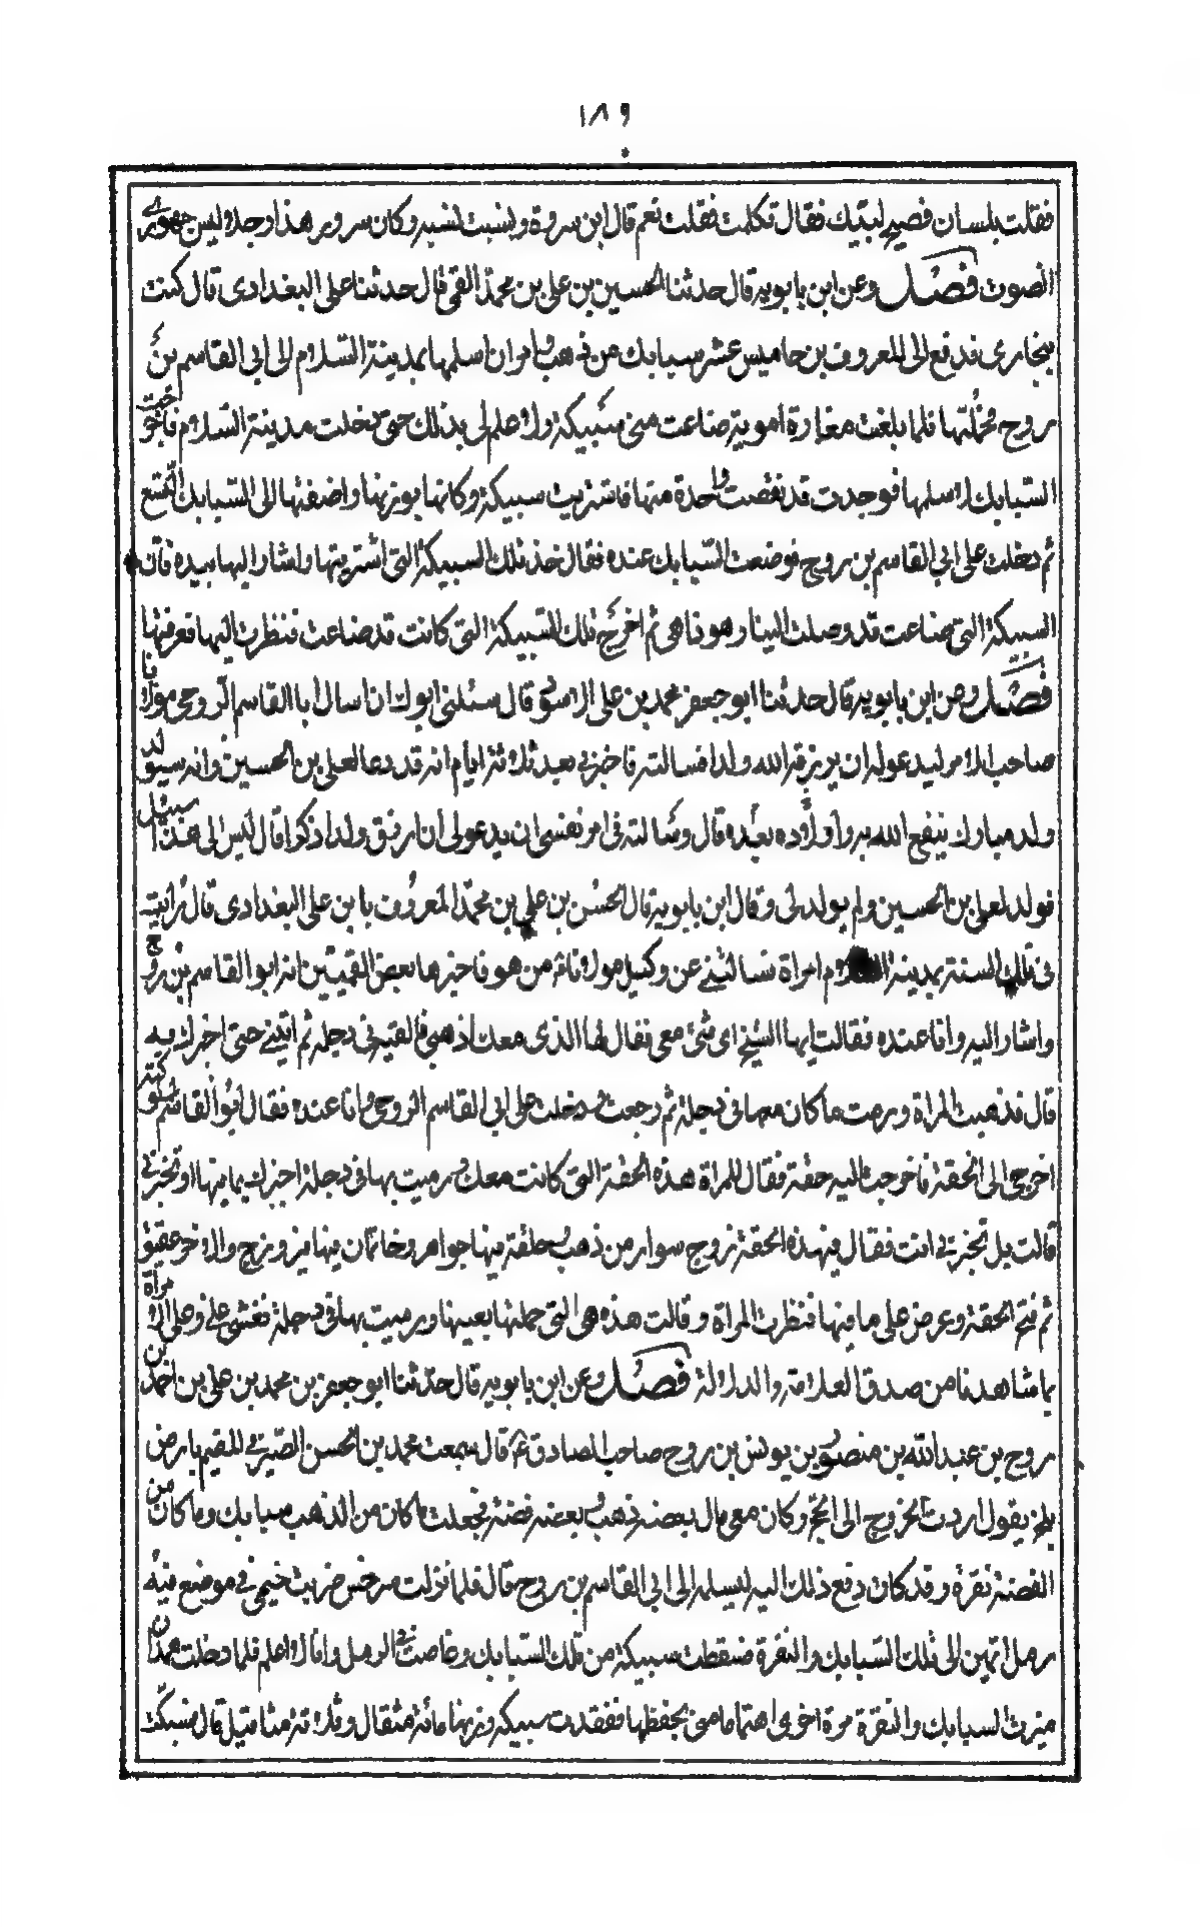 ١٨٩
فقلت بلسان فصيح لبيك فقال تكلمت فقلت نعم قال ابن سروة وينسب لنسبه وكان سرور هذا رجلا ليس جهوري
الصوت فصل وعن ابن بابويه قال حدثنا الحسين بن علي بن محمد القمي قال حدثنا علي البغدادى قال كنت
ببخارى فدفع الى المعروف بن جاميس عشر سبايك من ذهب وامران اسلمها بمدينة السلام الى ابي القاسم بن
روح فحملتها فلما بلغت مغازة امويه ضاعت منى سبيكة ولا علم لى بذلك حتى دخلت مدينة السلام فاخرجت
السبايك لاسلمها فوجدت قد نقصت واحدة منها فاشتريت سبيكة وكانها بوزنها واضفتها الى السبايك التسع
ثم دخلت على ابي القاسم بن روح فوضعت السبايك عنده فقال خذ تلك السبيكة التى اشتريتها واشار اليها بيده فان
السبيكة التى ضاعت قد وصلت الينا وهو ذا هى ثم اخرج تلك السبيكة التى كانت قد ضاعت فنظرت اليها فعرفتها
فصل وعن ابن بابويه قال حدثنا ابو جعفر محمد بن على الاسود قال سئلنى ابوك ان اسال ابا القاسم الروحى مولانا
صاحب الامر ليدعو له ان يرزقه الله ولدا فسالته فاخبرنى بعد ثلاثة ايام انه قد دعا لعلى بن الحسين وانه سيولد له
ولد مبارك ينفع الله به واولاده بعده قال وسالته فى امر نفسى ان يدعو لى ان ارزق ولدا ذكرا قال ليس لى هذا سبيل
فولد لعلى بن الحسين ولم يولد لى وقال ابن بابويه قال الحسن بن علي بن محمد المعروف بابن على البغدادى قال رايت
فى تلك السنة بمدينة السلام امراة تسالنى عن وكيل مولانا من هو فاخبرها بعض القميين انه ابو القاسم بن روح
واشار اليه وانا عنده فقالت ايها الشيخ اى شئ معى فقال لها الذى معك اذهبى فالقيه فى دجلة ثم اتينى حتى اخبرك به
قال فذهبت المراة ورمت ما كان معها فى دجلة ثم رجعت ودخلت على ابى القاسم الروحى وانا عنده فقال ابو القاسم لمملوكته
اخرجى الى الحقة فاخرجت اليه حقة فقال للمراة هذه الحقة التى كانت معك ورميت بها فى دجلة اخبرك بما فيها او تخبرنى
قالت بل تخبرنى انت فقال فى هذه الحقة زوج سوار من ذهب وحلقة فيها جواهر وخاتمان فيها فيروزج والاخر عقيق
ثم فتح الحقة وعرض على ما فيها فنظرت المراة وقالت هذه هى التى حملتها بعينها ورميت بها فى دجلة فغشى على وعلى المراة
بما شاهدنا من صدق العلامة والدلالة فصل وعن ابن بابويه قال حدثنا ابو جعفر بن محمد بن على بن احمد بن
روح بن عبد الله بن منصور بن يونس بن روح صاحب الصادق ع قال سمعت محمد بن الحسن الصيرفى المقيم بارض
بلخ يقول اردت الخروج الى الحج وكان معى مال بعضه ذهب وبعضه فضة فجعلت ما كان من الذهب سبايك وما كان من
الفضة نقرة وقد كان دفع ذلك اليه ليسلمه الى ابى القاسم بن روح قال فلما نزلت سرخس ضربت خيمتى فى موضع فيه
رمل اتهين الى تلك السبايك والنقرة فسقطت سبيكة من تلك السبايك وغاصت فى الرمل وانا لا اعلم فلما دخلت همذان
ميزت السبايك والنقرة مرة اخرى اهتماما منى بحفظها ففقدت سبيكة وزنها مائة مثقال وثلاثة مثاقيل قال فسبكت